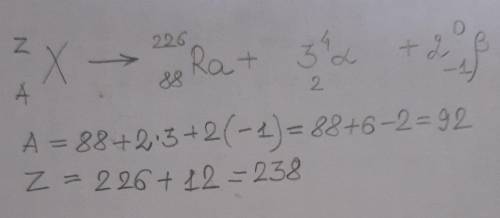 Z/A X → 226/88 Ra + 3 4/2 α + 2 0/-1 β
A = 88+2·3+2(-1) = 88+6-2=92
Z = 226+12=238